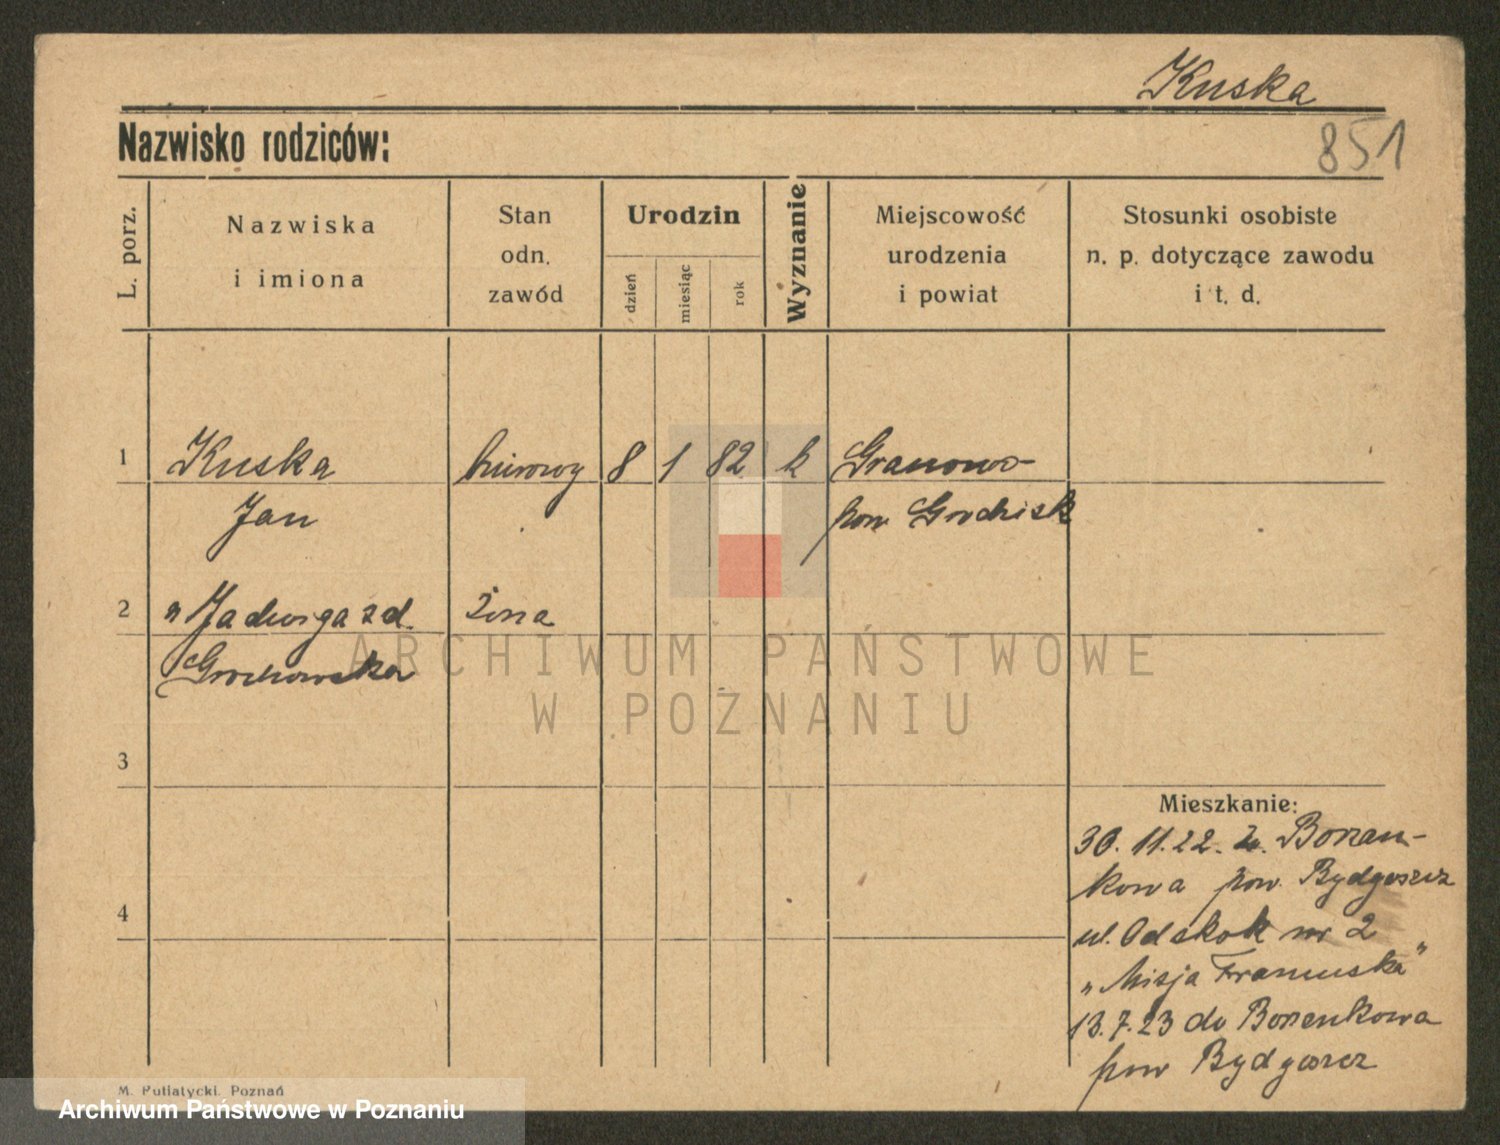 Kuska
Nazwisko rodziców:
851
L. porz.
Nazwiska
i imiona
Stan
odn.
zawód
Urodzin
dzień
miesiąc
rok
Wyznanie
Miejscowość
urodzenia
i powiat
Stosunki osobiste
n. p. dotyczące zawodu
i t. d.
1 Kuska biurowy 8 1 82 k Granowo
Jan pow Grodzisk
2 " Jadwiga z d. żona
Grochowska
ARCHIWUM PAŃSTWOWE
W POZNANIU
3
4
Mieszkanie:
30.11.22. z. Borzen-
kowa pow. Bydgoszcz
ul. Odskok nr 2
„Misja Francuska"
13.7.23 do Borzenkowa
pow Bydgoszcz
M. Putiatycki. Poznań
Archiwum Państwowe w Poznaniu